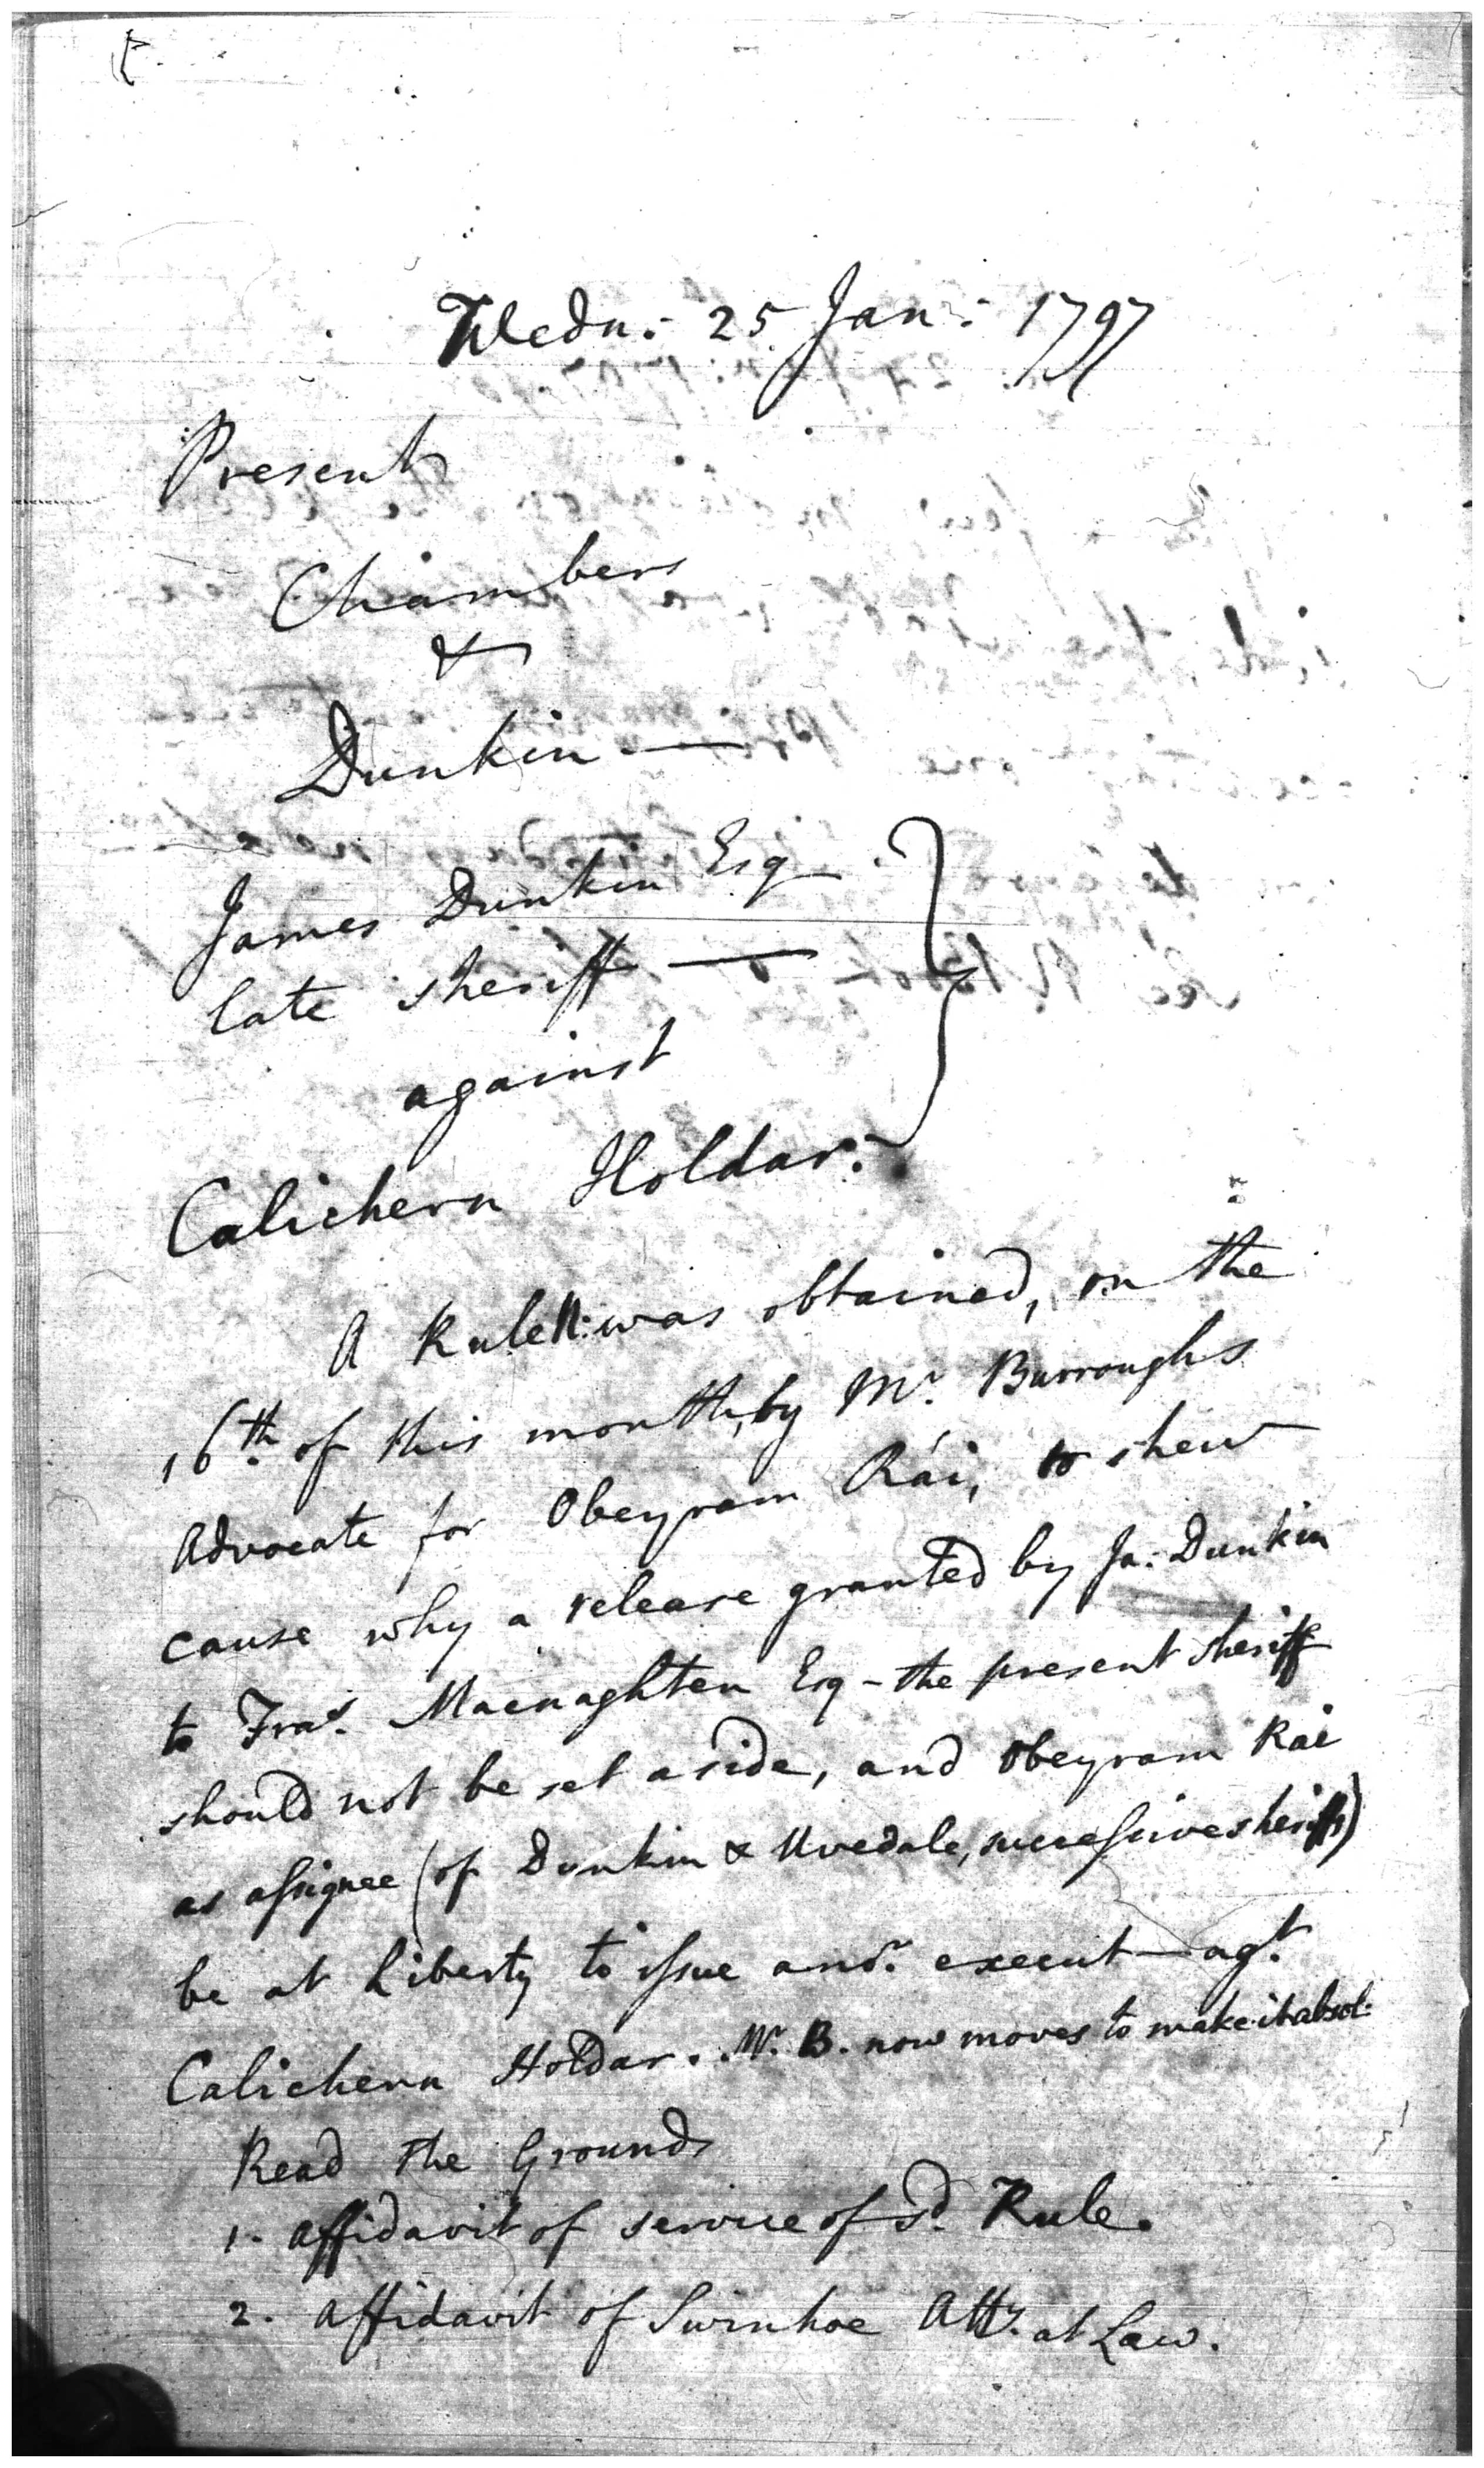 Wedn:- 25 Jan:- 1797
Present
Chambers
&
Dunkin —
James Dunkin Esq
late sheriff —
against
Calichern Holdar.
A Rule N: was obtained, on the
16th. of this month, by Mr. Burroughs
Advocate for Obeyram Rái, to shew
cause why a release granted by Ja: Dunkin
to Fras. Macnaghten Esq - the present sheriff
should not be set aside, and Obeyram Rai
as assignee (of Dunkin & Uvedale, successive sheriffs)
be at Liberty to issue anor. execut— agt.
Calichern Holdar. Mr. B. now moves to make it absol:
Read the Grounds
1. Affidavit of service of sd. Rule.
2. Affidavit of Swinhoe Atty. at Law.